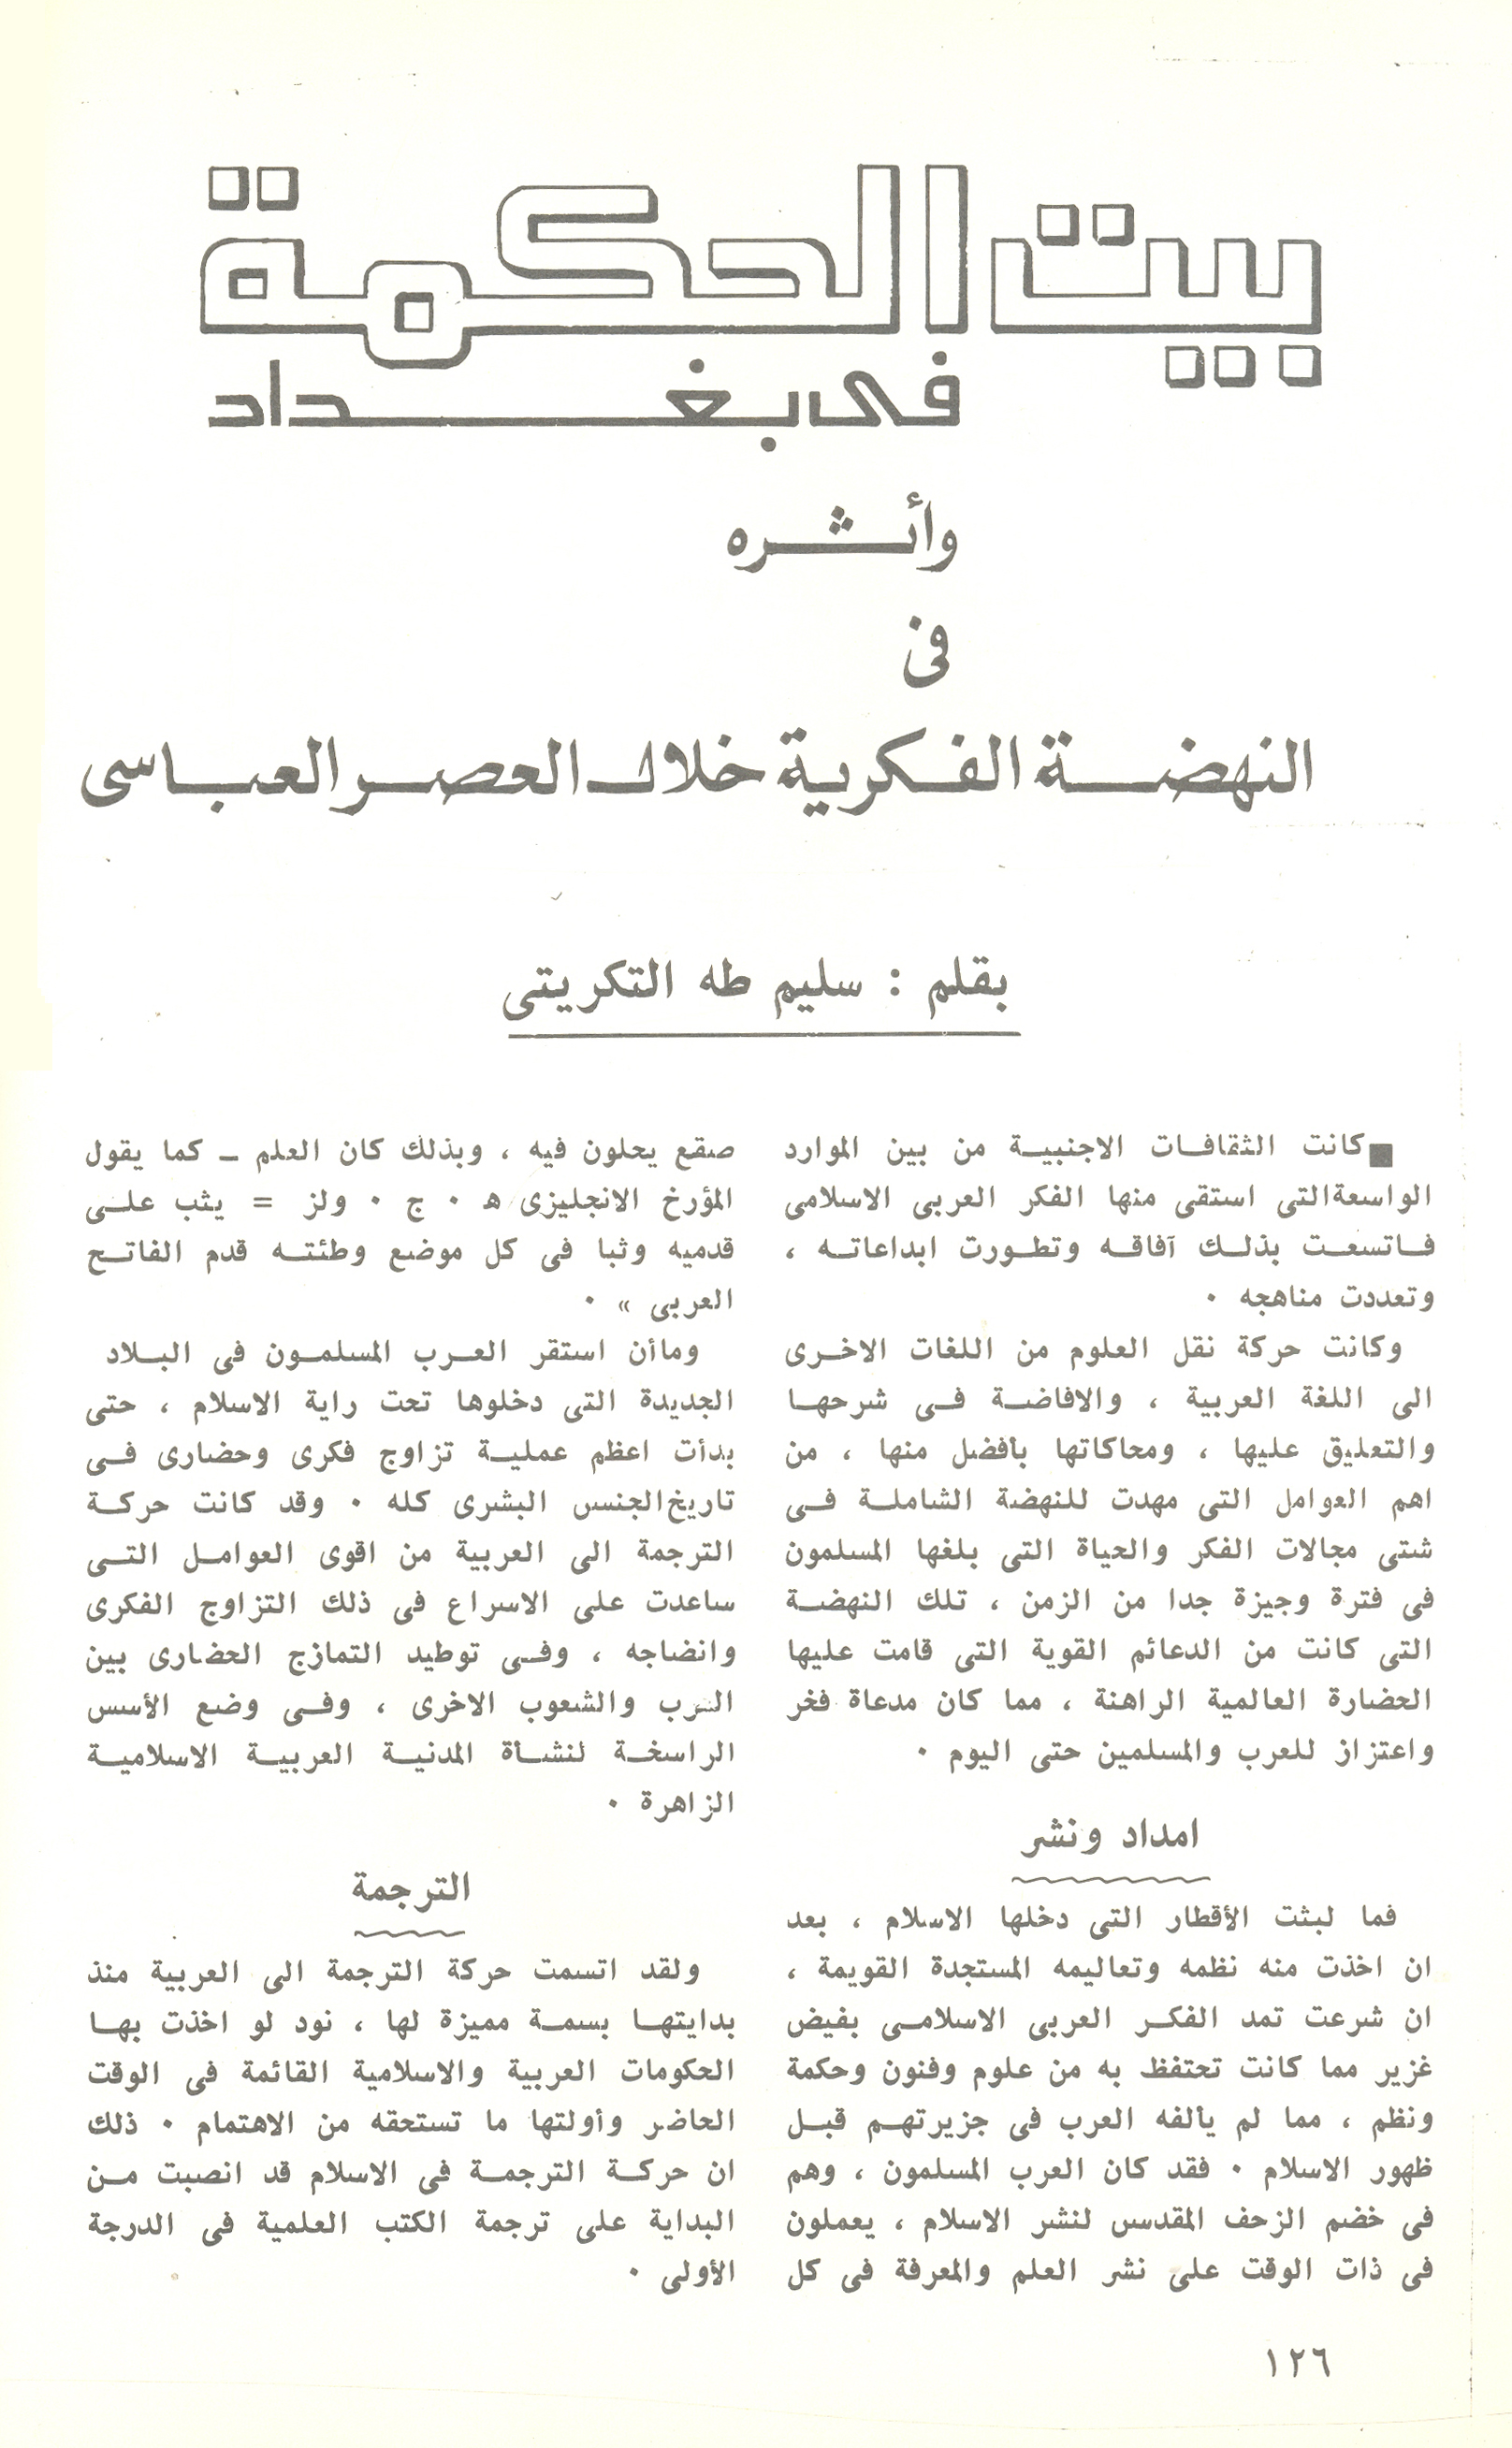 بيت الحكمة
فى بغداد
وأثره
فى
النهضة الفكرية خلال العصر العباسى
بقلم : سليم طه التكريتى
كانت الثقافات الاجنبية من بين الموارد
الواسعة التى استقى منها الفكر العربى الاسلامى
فاتسعت بذلك آفاقه وتطورت ابداعاته ،
وتعددت مناهجه ٠
وكانت حركة نقل العلوم من اللغات الاخرى
الى اللغة العربية ، والافاضة فى شرحها
والتعليق عليها ، ومحاكاتها بأفضل منها ، من
اهم العوامل التى مهدت للنهضة الشاملة فى
شتى مجالات الفكر والحياة التى بلغها المسلمون
فى فترة وجيزة جدا من الزمن ، تلك النهضة
التى كانت من الدعائم القوية التى قامت عليها
الحضارة العالمية الراهنة ، مما كان مدعاة فخر
واعتزاز للعرب والمسلمين حتى اليوم ٠
امداد ونشر
فما لبثت الأقطار التى دخلها الاسلام ، بعد
ان اخذت منه نظمه وتعاليمه المستجدة القويمة ،
ان شرعت تمد الفكر العربى الاسلامى بفيض
غزير مما كانت تحتفظ به من علوم وفنون وحكمة
ونظم ، مما لم يألفه العرب فى جزيرتهم قبل
ظهور الاسلام ٠ فقد كان العرب المسلمون ، وهم
فى خضم الزحف المقدس لنشر الاسلام ، يعملون
فى ذات الوقت على نشر العلم والمعرفة فى كل
صقع يحلون فيه ، وبذلك كان العلم – كما يقول
المؤرخ الانجليزى ه ٠ ج ٠ ولز = يثب على
قدميه وثبا فى كل موضع وطئته قدم الفاتح
العربى » ٠
وماأن استقر العرب المسلمون فى البلاد
الجديدة التى دخلوها تحت راية الاسلام ، حتى
بدأت اعظم عملية تزاوج فكرى وحضارى فى
تاريخ الجنس البشرى كله ٠ وقد كانت حركة
الترجمة الى العربية من اقوى العوامل التى
ساعدت على الاسراع فى ذلك التزاوج الفكرى
وانضاجه ، وفى توطيد التمازج الحضارى بين
العرب والشعوب الاخرى ، وفى وضع الأسس
الراسخة لنشأة المدنية العربية الاسلامية
الزاهرة ٠
الترجمة
ولقد اتسمت حركة الترجمة الى العربية منذ
بدايتها بسمة مميزة لها ، نود لو اخذت بها
الحكومات العربية والاسلامية القائمة فى الوقت
الحاضر وأولتها ما تستحقه من الاهتمام ٠ ذلك
ان حركة الترجمة فى الاسلام قد انصبت من
البداية على ترجمة الكتب العلمية فى الدرجة
الأولى ٠
١٢٦